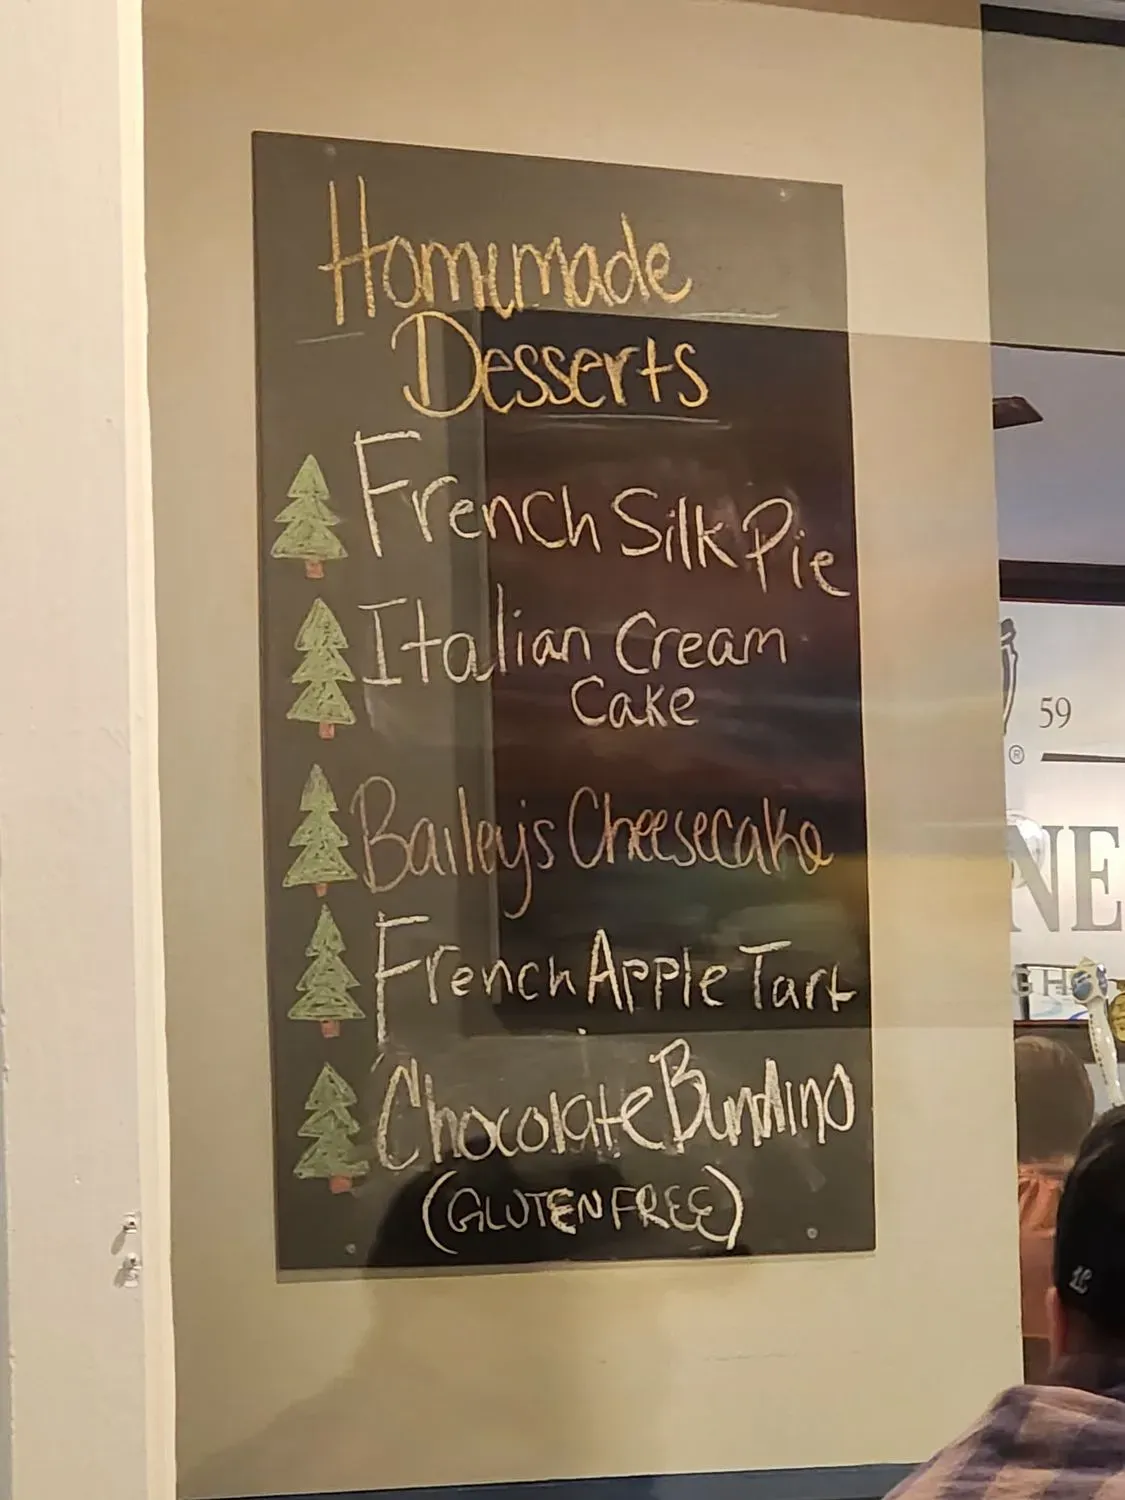 Homemade
Desserts
French Silk Pie
Italian Cream
Cake
Bailey's Cheesecake
French Apple Tart
Chocolate Bundino
(GLUTEN FREE)
59
®
NE
GH